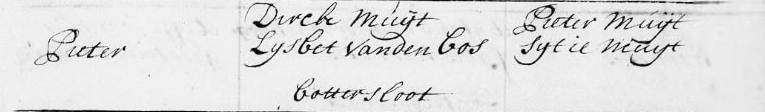 Pieter
Dirck Muÿt
Lysbet Vanden Bos
Bottersloot
Pieter Muÿt
Sytie Muÿt